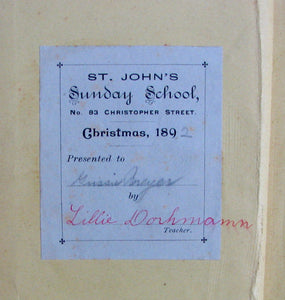 ST. JOHN'S
Sunday School,
No. 83 CHRISTOPHER STREET.
Christmas, 1892
Presented to
Gussie Breyer
by
Lillie Dorhmann
Teacher.